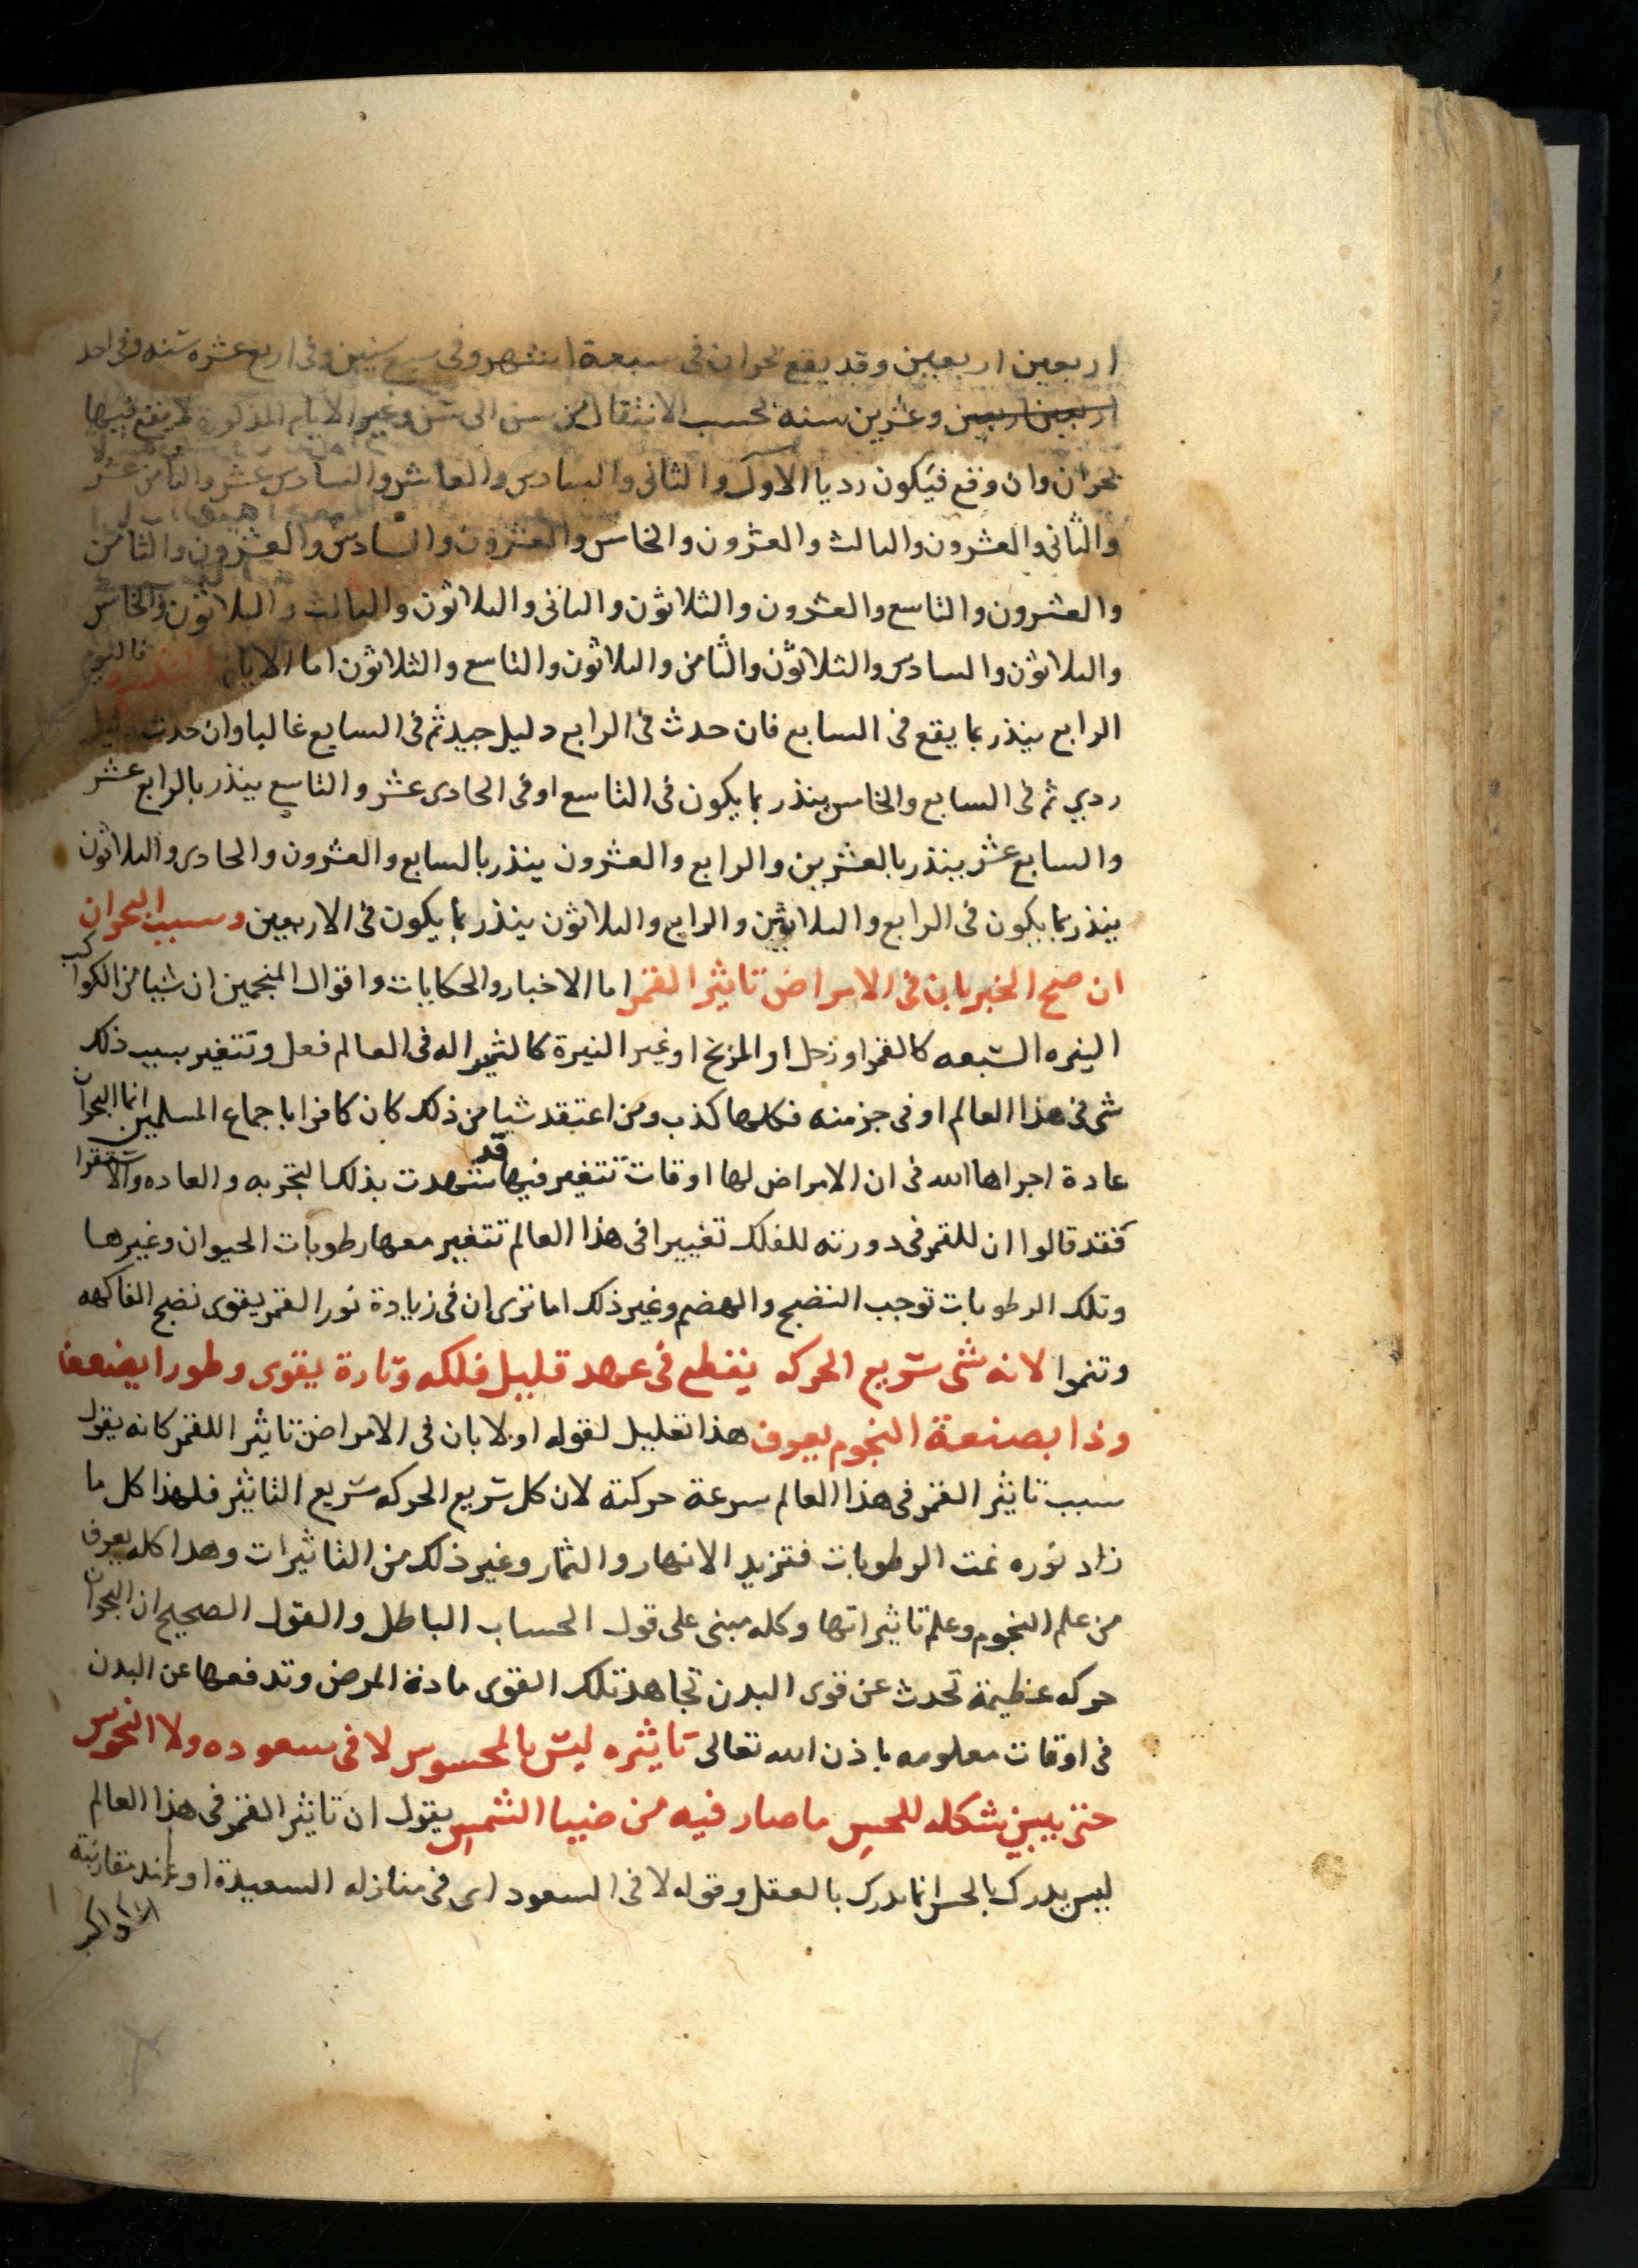 اربعين اربعين وقد يقع بحران فى سبعة اشهر وفى سبع سنين وفى اربع عشره سنه وفى احد
اربعين اربعين وعشرين سنه بحسب الانتقال من سن الى سن وغير الايام المذكورة لا يقع فيها
بحران وان وقع فيكون رديا الاول والثانى والسادس والعاشر والسادس عشر والثامن عشر
والثانى والعشرون والثالث والعشرون والخامس والعشرون والسادس والعشرون والثامن
والعشرون والتاسع والعشرون والثلاثون والثانى والثلاثون والثالث والثلاثون والخامس
والثلاثون والسادس والثلاثون والثامن والثلاثون والتاسع والثلاثون اما الايام المنذره فاليوم
الرابع ينذر بما يقع فى السابع فان حدث فى الرابع دليل جيد تم فى السابع غالبا وان حدث دليل
ردي تم فى السابع والخامس ينذر بما يكون فى التاسع او فى الحادى عشر والتاسع ينذر بالرابع عشر
والسابع عشر ينذر بالعشرين والرابع والعشرون ينذر بالسابع والعشرون والحادى والثلاثون
ينذر بما يكون فى الرابع والثلاثين والرابع والثلاثون ينذر بما يكون فى الاربعين وسبب البحران
ان صح الخبر بان فى الامراض تاثير القمر اما الاخبار والحكايات واقوال المنجمين ان شيا من الكواكب
النيره السبعه كالقمر او زحل او المريخ او غير النيرة كالثير اله فى العالم فعل وتتغير بسبب ذلك
شى فى هذا العالم او فى جز منه فكلها كذب ومن اعتقد شيا من ذلك كان كافرا باجماع المسلمين انما البحران
عادة اجراها الله فى ان الامراض لها اوقات تتغير فيها قد شهدت بذلك التجربه والعاده والاستقرا
فقد قالوا ان للقمر فى دورته للفلك تغييرا فى هذا العالم تتغير معها رطوبات الحيوان وغيرها
وتلك الرطوبات توجب النضج والهضم وغير ذلك اما ترى ان فى زيادة نور القمر يقوى نضج الفاكهه
وتنموا لانه شى سريع الحركه يقطع فى عهد قليل فلكه وتارة يقوى وطورا يضعف
وذا بصنعة النجوم يعرف هذا تعليل لقوله اولا بان فى الامراض تاثير اللقمر كانه يقول
سبب تاثير القمر فى هذا العالم سرعة حركته لان كل سريع الحركه سريع التاثير فلهذا كل ما
زاد نوره نمت الرطوبات فتزيد الانهار والثمار وغير ذلك من التاثيرات وهدا كله يعرف
من علم النجوم وعلم تاثيراتها وكله مبنى على قول الحساب الباطل والقول الصحيح ان البحران
حركه عظيمة تحدث عن قوى البدن تجاهد تلك القوى مادة المرض وتدفعها عن البدن
فى اوقات معلومه باذن الله تعالى تاثيره ليس بالمحسوس لا فى سعوده ولا النحوس
حتى يبين شكله للحس ما صار فيه من ضيا الشمس يقول ان تاثير القمر فى هذا العالم
ليس يدرك بالحس انما يدرك بالعقل وقوله لا فى السعود اى فى منازله السعيدة او عند مقارنته